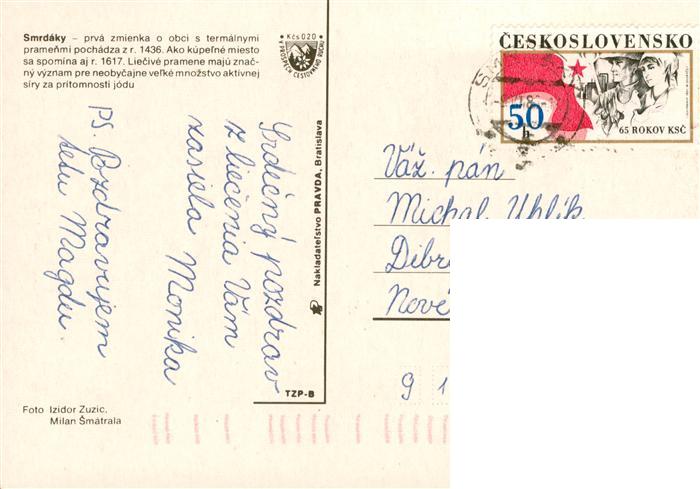 Smrdáky – prvá zmienka o obci s termálnymi
prameňmi pochádza z r. 1436. Ako kúpeľné miesto
sa spomína aj r. 1617. Liečivé pramene majú znač-
ný význam pre neobyčajne veľké množstvo aktívnej
síry za prítomnosti jódu
Kčs 020
V PROSPECH CESTOVNÉHO RUCHU
ČESKOSLOVENSKO
50
h
65 ROKOV KSČ
Srdečný pozdrav
z liečenia Vám
zasiela Monika
PS. Pozdravujem
tetu Magdu
Nakladateľstvo PRAVDA, Bratislava
TZP-B
Váž. pán
Michal Uhlík
Nové
9 1
Foto Izidor Zuzic,
Milan Šmátrala